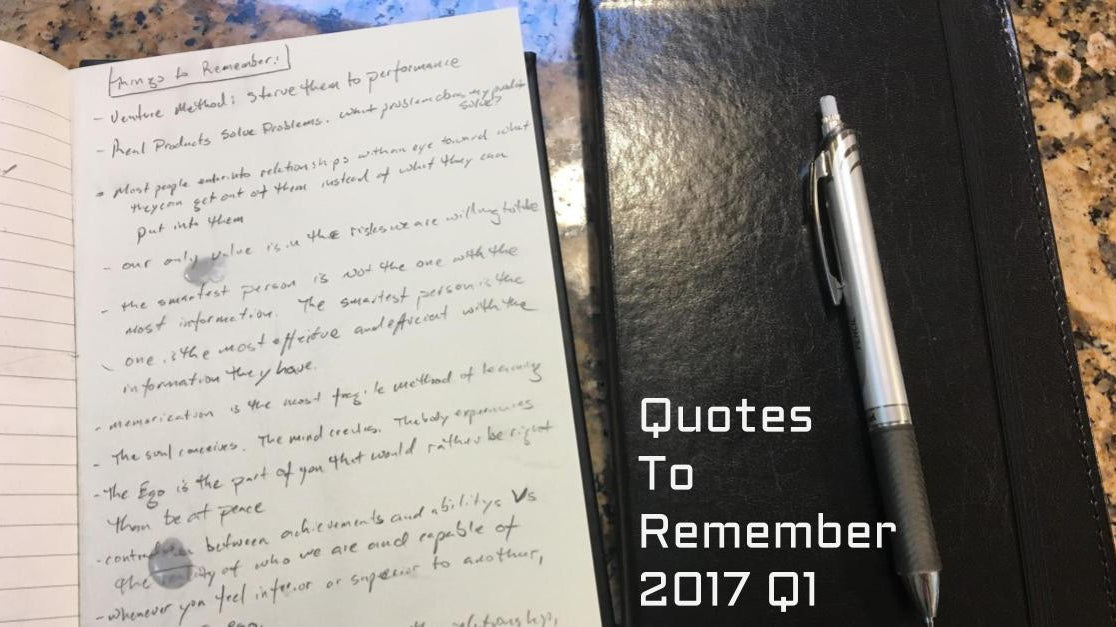 Things to Remember:
- Venture Method: Starve them to performance
- Real Products Solve Problems. What problem does my product
solve?
- Most people enter into relationships with an eye toward what
they can get out of them instead of what they can
put into them
- our only value is in the risks we are willing to take
- the smartest person is not the one with the
most information. The smartest person is the
one is the most effeitve and efficient with the
information they have.
- memorization is the most fragile method of learning
- The soul conceives. The mind creates. The body experiences
- The Ego is the part of you that would rather be right
than be at peace
- between achievements and abilitys Vs
the reality of who we are and capable of
- whenever you feel inferior or superior to another,
ego.
relationships,
Quotes
To
Remember
2017 Q1